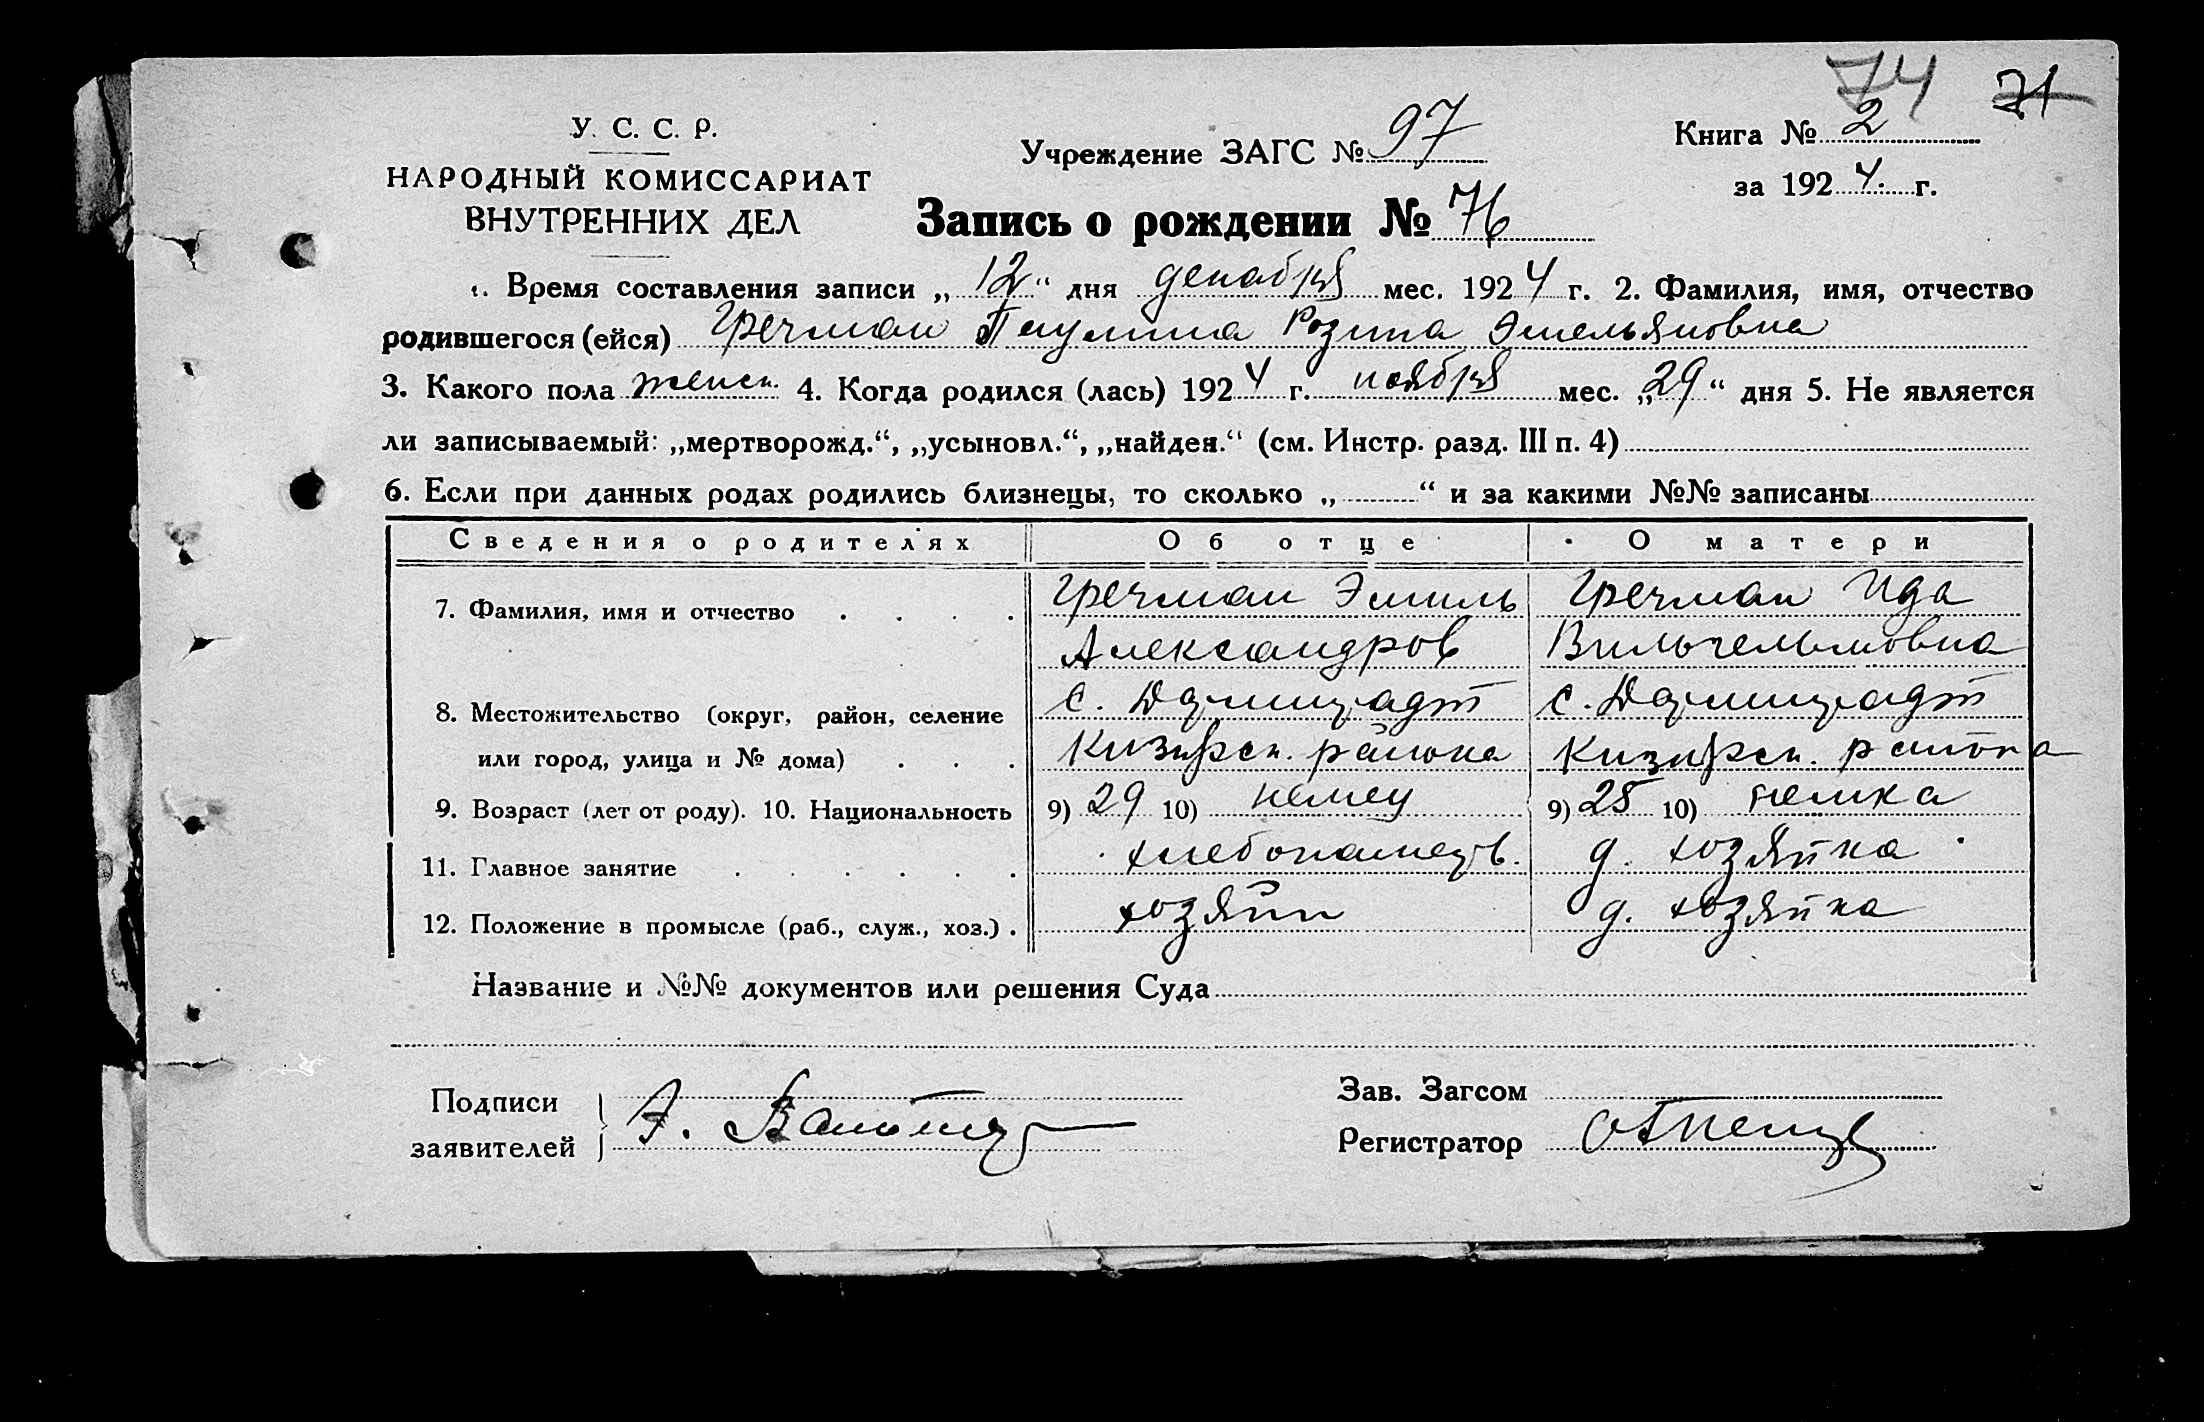 74 71
У. С. С. Р.
НАРОДНЫЙ КОМИССАРИАТ
ВНУТРЕННИХ ДЕЛ
Учреждение ЗАГС № 97
Книга № 2
за 1924 г.
Запись о рождении № 76
1. Время составления записи „12“ дня декабря мес. 1924 г. 2. Фамилия, имя, отчество
родившегося (ейся) Гречман Паулина Розина Эмельяновна
3. Какого пола женск. 4. Когда родился (лась) 1924 г. ноября мес. „29“ дня 5. Не является
ли записываемый: „мертворожд.“, „усыновл.“, „найден.“ (см. Инстр. разд. III п. 4)
6. Если при данных родах родились близнецы, то сколько „ “ и за какими №№ записаны
Сведения о родителях Об отце О матери
7. Фамилия, имя и отчество . . . . Гречман Эмиль Гречман Ида
Александров Вильгельмовна
8. Местожительство (округ, район, селение с. Дармштадт с. Дармштадт
или город, улица и № дома) . . . района района
9. Возраст (лет от роду). 10. Национальность 9) 29 10) немец 9) 25 10) немка
11. Главное занятие . . . . . . хлебопашец д. хозяйка
12. Положение в промысле (раб., служ., хоз.) . хозяин д. хозяйка
Название и №№ документов или решения Суда
Подписи
заявителей
Зав. Загсом
Регистратор